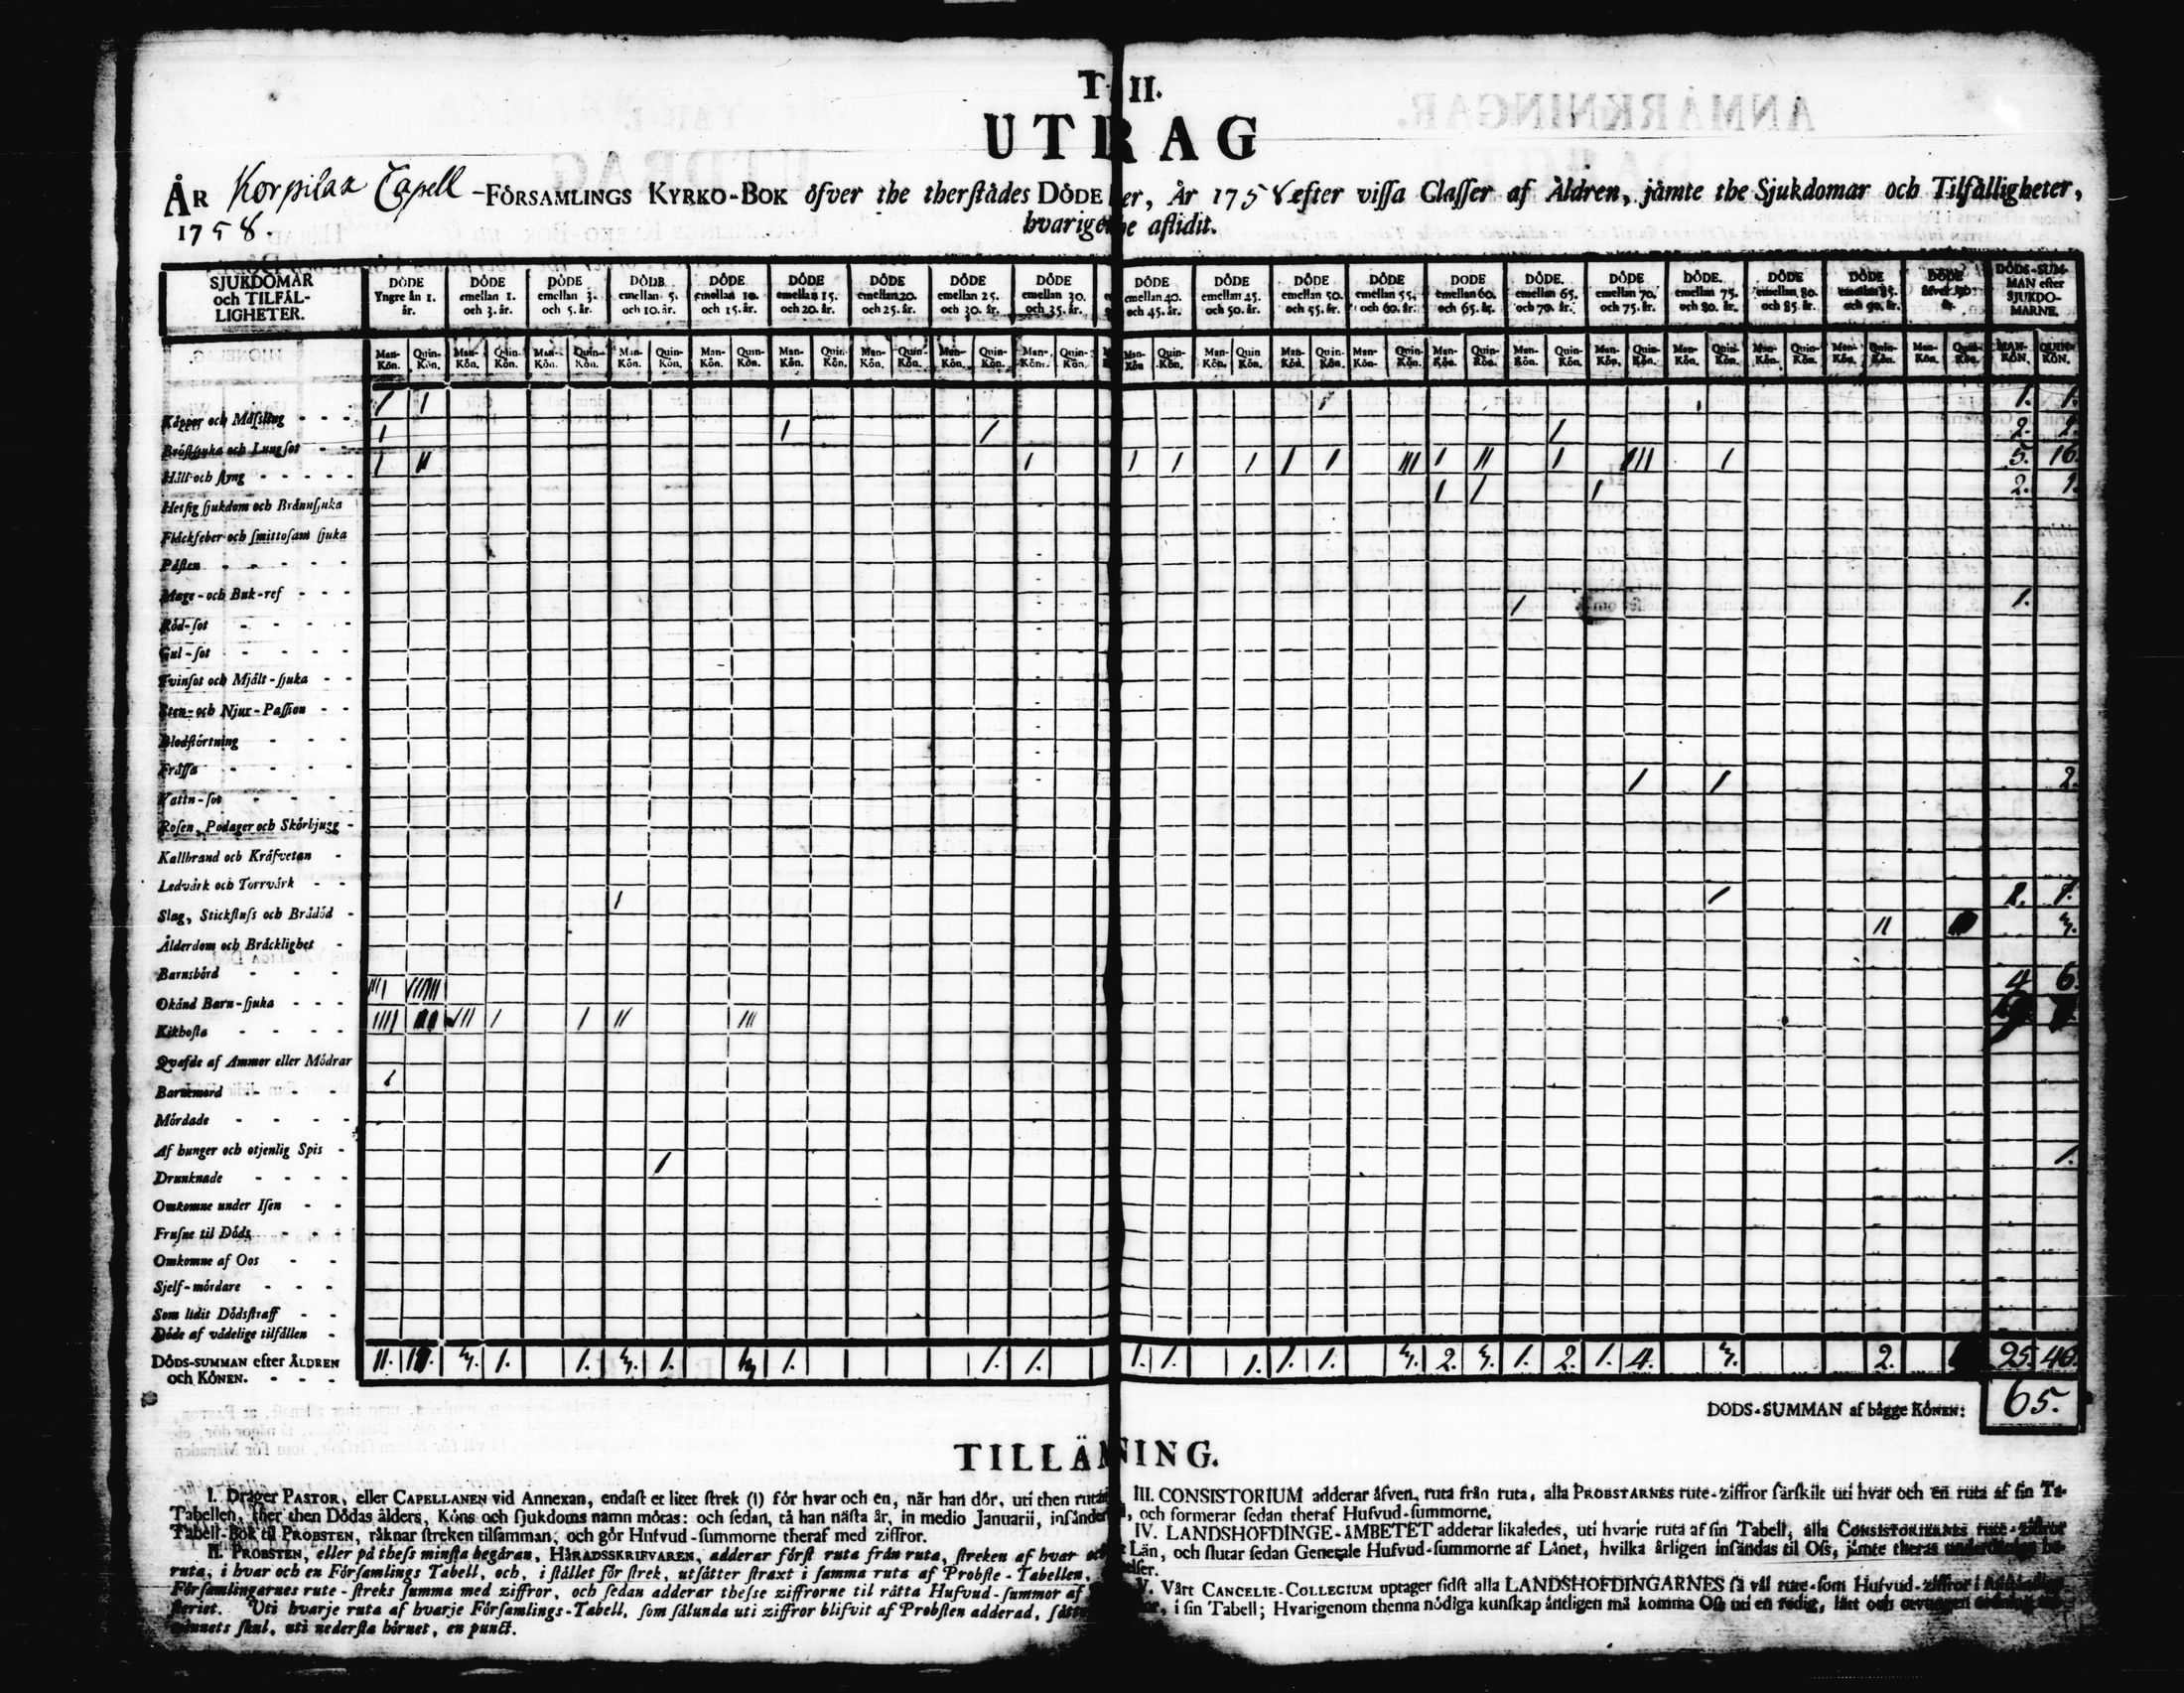 T. II.
UTRAG
ÅR Korpilax Capell -FÖRSAMLINGS KYRKO-BOK öfver the therstädes DÖDE er, År 1758 efter vissa Classer af Åldren, jämte the Sjukdomar och Tilfälligheter,
1758. hvarige he aflidit.
SJUKDOMAR och TILFÄL-LIGHETER. DÖDE Yngre än 1. år. DÖDE emellan 1. och 3. år. DÖDE emellan 3. och 5. år. DÖDE emellan 5. och 10. år. DÖDE emellan 10. och 15. år. DÖDE emellan 15. och 20. år. DÖDE emellan 20. och 25. år. DÖDE emellan 25. och 30. år. DÖDE emellan 30. och 35. år. DÖDE emellan 40. och 45. år. DÖDE emellan 45. och 50. år. DÖDE emellan 50. och 55. år. DÖDE emellan 55. och 60. år. DÖDE emellan 60. och 65. år. DÖDE. emellan 65. och 70. år. DÖDE emellan 70. och 75. år. DÖDE. emellan 75. och 80. år. DÖDE emellan 80. och 85. år. DÖDE emellan 85. och 90. år. DÖDE öfver 90 år. DÖDS-SUM-MAN efter SJUKDO-MARNE.
Man-Kön. Quin-Kön. Man-Kön. Quin-Kön. Man-Kön. Quin-Kön. Man-Kön. Quin-Kön. Man-Kön. Quin-Kön. Man-Kön. Quin-Kön. Man-Kön. Quin-Kön. Man-Kön. Quin-Kön. Man-Kön. Quin-Kön. Man-Kön Quin-Kön. Man-Kön. Quin-Kön. Man-Kön. Quin-Kön. Man-Kön. Quin-Kön. Man-Kön. Quin-Kön. Man-Kön. Quin-Kön. Man-Kön. Quin-Kön. Man-Kön. Quin-Kön. Man-Kön. Quin-Kön. Man-Kön. Quin-Kön. Man-Kön. Quin-Kön. MAN-KÖN. QUIN-KÖN.
Kåppor och Mässling - - - / / / 1. 1.
Bröstsjuka och Lungsot - - / / / / 2. 2.
Håll och styng - - - - - / // / / / / / / /// / // / //// / 5. 16.
Hetsig sjukdom och Brännsjuka / / / 2. 1.
Fläckfeber och smittosam sjuka
Pästen - - - - -
Mage-och Buk-ref - - -
Röd-sot - - - - - / 1.
Gul-sot - - - - -
Tvinsot och Mjält-sjuka - -
Sten-och Njur-Passion - -
Blodstörtning - - -
Frässa - - - - -
Vattn-sot - - - - / / 2.
Rosen, Podager och Skörbjugg -
Kallbrand och Kräfvetan -
Ledvärk och Torrvärk - -
Slag, Stickfluss och Brådöd - / / 1. 1.
Ålderdom och Bräcklighet - //
Barnsbörd - - - -
Okänd Barn-sjuka - - - //// 4 6.
Kikhosta - - - - //// / / // ///
Qvafde af Ammor eller Mödrar
Barnemord - - - - /
Mördade - - - - -
Af hunger och otjenlig Spis -
Drunknade - - - - / 1.
Omkomne under Isen - -
Frusne til Döds - - -
Omkomne af Oos - -
Sjelf-mördare - - -
Som lidit Dödsstraff - -
Döde af vådelige tilfällen -
DÖDS-SUMMAN efter ÅLDREN och KÖNEN. - - - 11. 3. 1. 1. 3. 1. 3 1. 1. 1. 1. 1. 1. 1. 1. 3. 2. 3. 1. 2. 1. 4. 3. 2. 25. 40.
DÖDS-SUMMAN af bägge KÖNEN: 65.
TILLÄ NING.
I. Drager PASTOR, eller CAPELLANEN vid Annexan, endast et litet strek (1) för hvar och en, när han dör, uti then rutan
Tabellen, ther then Dödas ålders, Köns och sjukdoms namn mötas: och sedan, tå han nästa år, in medio Januarii, insänder
Tabell-Bok til PROBSTEN, räknar streken tilsamman, och gör Hufvud-summorne theraf med ziffror.
II. PROBSTEN, eller på thess minsta begäran, HÄRADSSKRIFVAREN, adderar först ruta från ruta, streken af hvar och
ruta, i hvar och en Församlings Tabell, och, i stället för strek, utsätter straxt i samma ruta af Probste-Tabellen,
Församlingarnes rute-streks summa med ziffror, och sedan adderar thesse ziffrorne til rätta Hufvud-summor af
steriet. Uti hvarje ruta af hvarje Församlings-Tabell, som sålunda uti ziffror blifvit af Probsten adderad,
minnets skul, uti nedersta hörnet, en punct.
III. CONSISTORIUM adderar äfven, ruta från ruta, alla PROBSTARNES rute-ziffror särskilt uti hvar och en ruta af sin Ta-
, och formerar sedan theraf Hufvud-summorne.
IV. LANDSHOFDINGE-ÄMBETET adderar likaledes, uti hvarje ruta af sin Tabell, alla CONSISTORIERNES rute-ziffror
Län, och slutar sedan Generale Hufvud-summorne af Länet, hvilka årligen insändas til Oss, jämte theras
V. Vårt CANCELIE-COLLEGIUM uptager sidst alla LANDSHOFDINGARNES så väl rute-som Hufvud-ziffror i
, i sin Tabell; Hvarigenom thenna nödiga kunskap äntligen må komma Oss uti en redig, lätt och